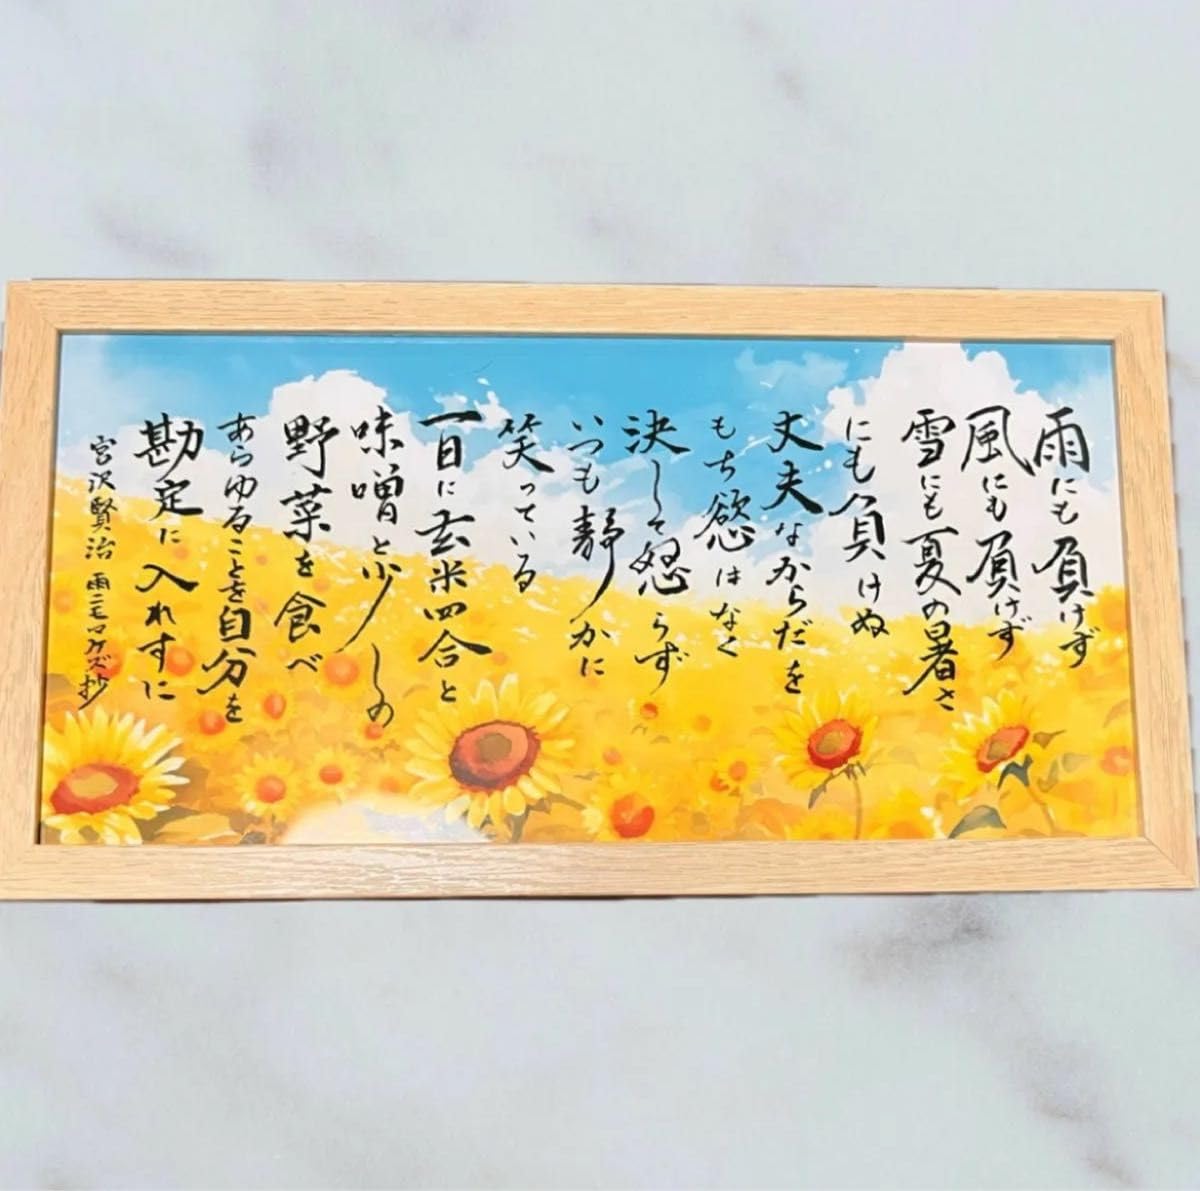 雨にも負けず
風にも負けず
雪にも夏の暑さ
にも負けぬ
丈夫なからだを
もち慾はなく
決して怒らず
いつも静かに
笑っている
一日に玄米四合と
味噌と少しの
野菜を食べ
あらゆることを自分を
勘定に入れずに
宮沢賢治 雨ニモマケズ抄